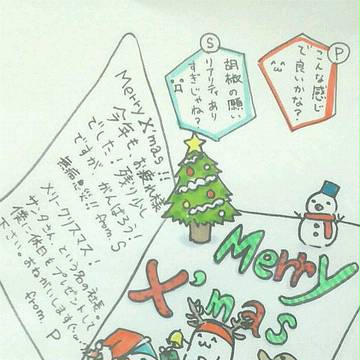 P
こんな感じ
で良いかな?
S
胡椒の願い
リアリティあり
すぎじゃね?
Merry X'mas!!
今年もお疲れ様
でした!残り少し
ですが、がんばろう!
無病息災!! from S
メリークリスマス!
サンタさんという名の社長。
僕に休日もプレゼントして
下さい。おねがいします
from P
Merry
X'mas